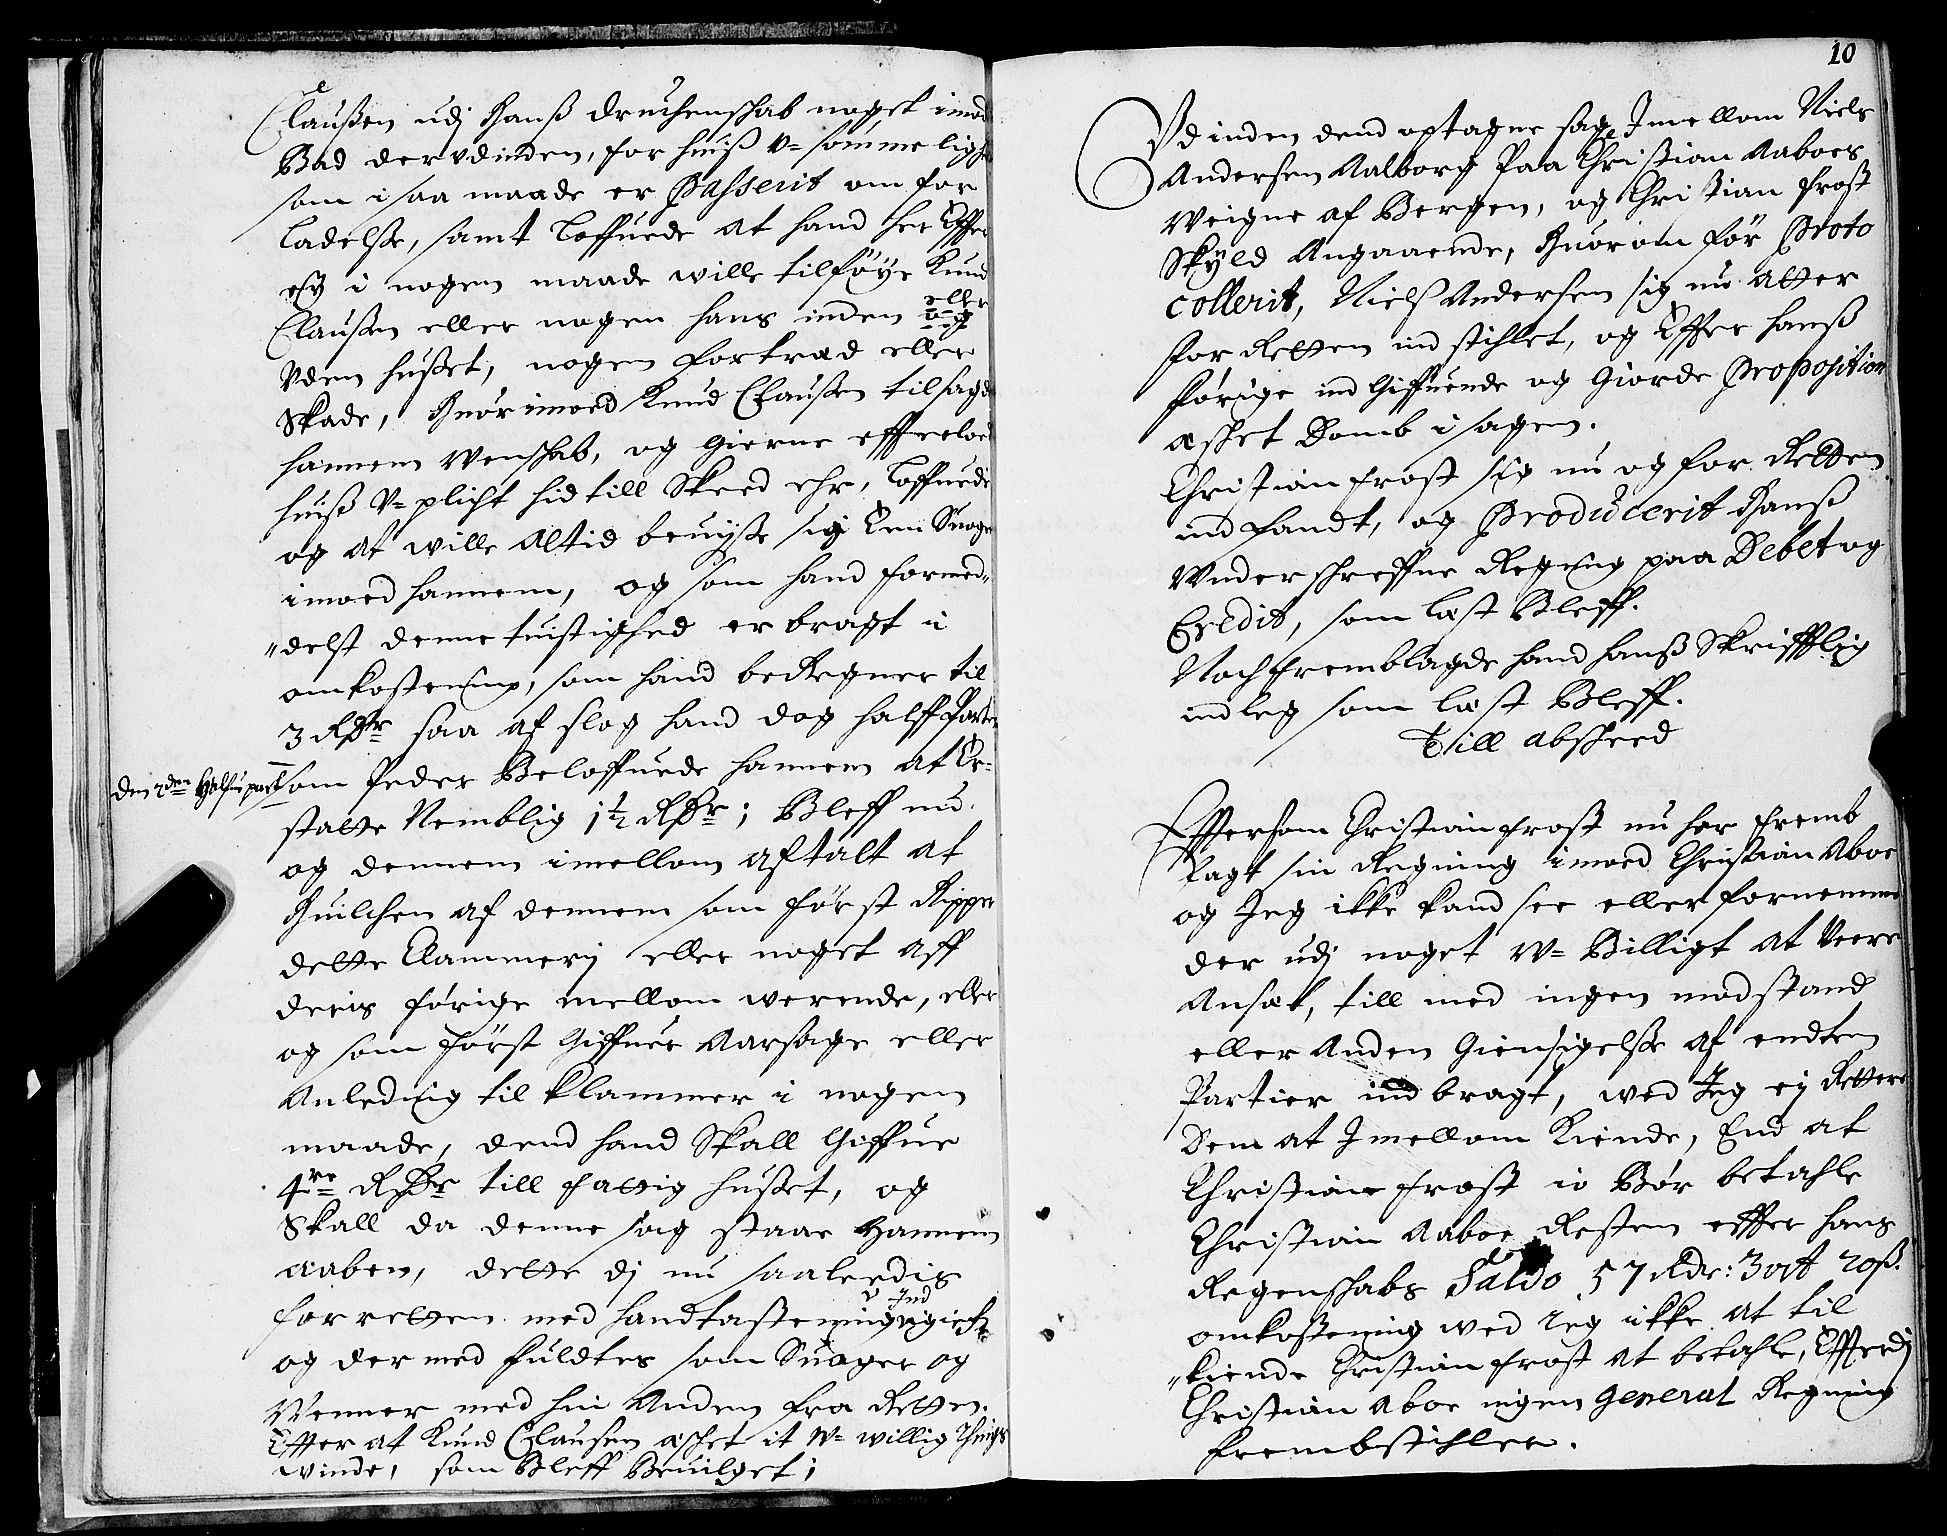 Claußen udj Hanß druchenschab noget imod
Bad der udinden, for huiß V= sømmeligh
som i saa maade er Passerit om for
ladelse, samt Loffuede at hand her Effter
ej i nogen maade wille tilføye Knud
Claußen eller nogen hans inden og eller
Uden hußet, nogen Fortræd eller
Skade, Huorimoed Knud Claußen tilsagde
hannem Wenschab, og gierne effterloed
huiß V= plicht hid till Skeed ehr, Loffuede
og at wille altid beuiise sig Een Suoger
imoed hannem, og som hand formed,
"delst denne tuistighed er bragt i
omkostning, som hand beregner til
3 Rdr saa af slog hand dog halff Parten
den 2den Halfuepart som Peder Beloffuede hannem at Er=
statte Nemblig 1½ Rdr; Bleff nu
og dennem imellom aftalt at
Huilchen af dennem som først Ripper
dette Clammerj eller noget aff
deris førige mellom werende, eller
og som først Giffuer Aarsage eller
Anledning til klammer i nogen
maade, dend hand Skall Giffue
4re Rdr till fattig hußet, og
Skall da denne sag staae Hannem
aaben, dette dj nu saaleedis
for retten med handtastening Ind gich
og der med fuldtes som Suoger og
Wenner med hin Anden fra Retten.
Effter at Knud Claußen æschet it W= willig Things
winde, som Bleff Beuilget;
10
Ud inden dend optagne sag Imellom Niels
Andersen Aalborg Paa Christian Aaboes
Weigne af Bergen, og Christian Frost
Skyld Angaaende, Huorom før Proto
collerit, Nielß Andersen sig nu atter
for Retten ind stihlet, og Effter hanß
førige ind Giffuende og Giorde Proposition
æschet Domb i sagen.
Christian Frost sig nu og for Retten
ind fandt, og Producerit Hanß
Underschreffne Regning paa Debet og
Credit, som læst Bleff.
Noch fremblagde hand hanß Skrifftlig
indleg som læst Bleff.
Till abscheed
Efftersom Christian Frost nu har fremb
lagt sin Regning imoed Christian Aboe
og Jeg ikke kand see eller fornemme
der udj noget W= Billigt at Veere
Ansat, till med ingen modstand
eller Anden Giensigelse af endten
Partier ind bragt, wed Jeg ej Rettere
Dem at Imellom Kiende, End at
Christian Frost io Bør betahle
Christian Aaboe Resten effter hans
Regenschabs Saldo 57 Rdr: 3 ort 20 ß.
omkostening wed Jeg ikke at til
"kiende Christian Frost at betahle, Efftersj
Christian Aboe ingen General Regning
frembstihler.